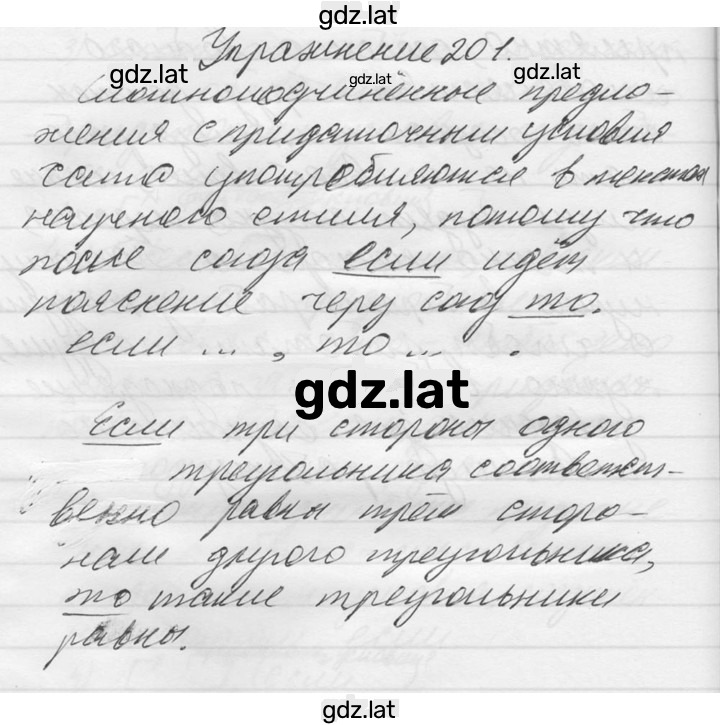 gdz.lat
Упражнение 201.
gdz.lat gdz.lat gdz.lat
Сложноподчинённые предло-
жения с придаточным условия
часто употребляются в текстах
научного стиля, потому что
после союза если идёт
пояснение через союз то.
если ... , то ... .
gdz.lat
Если три стороны одного
треугольника соответст-
венно равны трём сторо-
нам другого треугольника,
то такие треугольники
равны.
gdz.lat